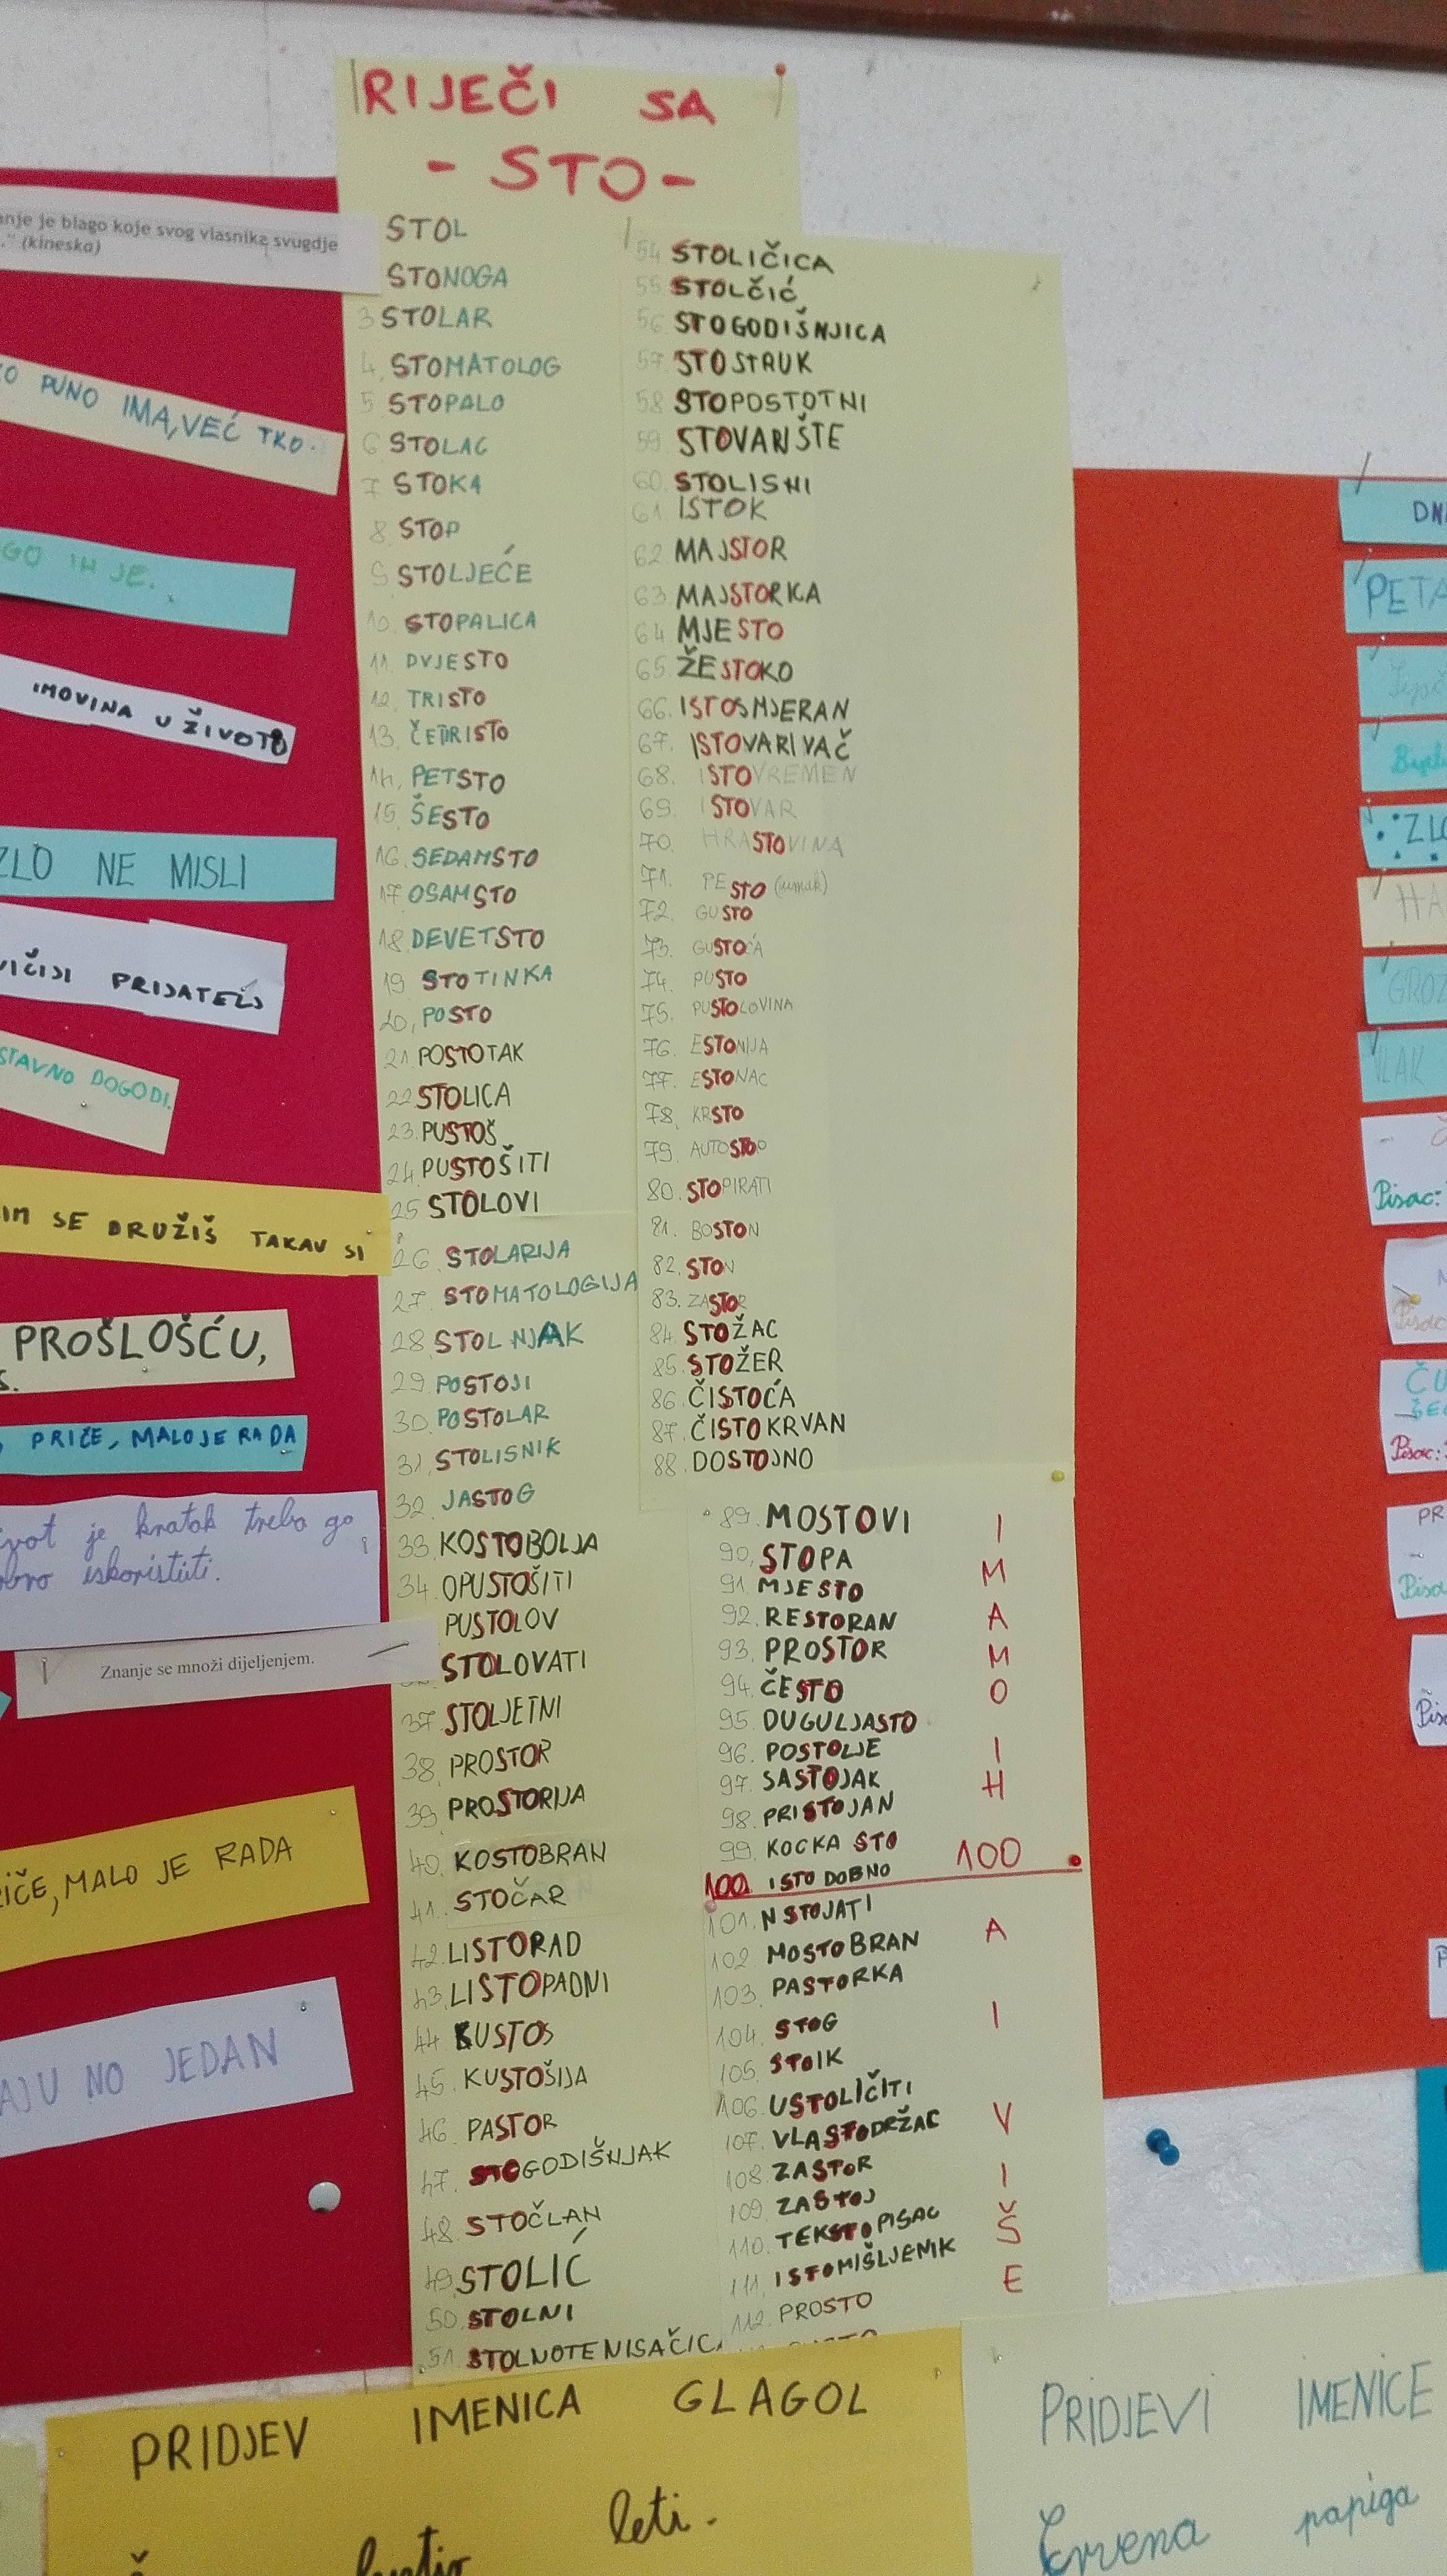 RIJEČI SA
- STO -
STOL
STONOGA
3 STOLAR
4. STOMATOLOG
5 STOPALO
6 STOLAC
7 STOKA
8 STOP
9 STOLJEĆE
10. STOPALICA
11. DVJESTO
12. TRISTO
13. ČETRISTO
14. PETSTO
15. ŠESTO
16. SEDAMSTO
17 OSAMSTO
18 DEVETSTO
19 STOTINKA
20. POSTO
21. POSTOTAK
22 STOLICA
23. PUSTOŠ
24. PUSTOŠITI
25 STOLOVI
26. STOLARIJA
27. STOMATOLOGIJA
28. STOLNJAK
29. POSTOJI
30. POSTOLAR
31. STOLISNIK
32. JASTOG
33. KOSTOBOLJA
34. OPUSTOŠITI
PUSTOLOV
STOLOVATI
37. STOLJETNI
38. PROSTOR
39. PROSTORIJA
40. KOSTOBRAN
41. STOČAR
42. LISTORAD
43. LISTOPADNI
44 KUSTOS
45. KUSTOŠIJA
46. PASTOR
47. STOGODIŠNJAK
48. STOČLAN
49. STOLIĆ
50. STOLNI
51. STOLNOTENISAČICA
54 STOLIČICA
55 STOLČIĆ
56 STOGODIŠNJICA
57. STOSTRUK
58 STOPOSTOTNI
59 STOVARIŠTE
60. STOLISNI
61 ISTOK
62 MAJSTOR
63 MAJSTORICA
64 MJESTO
65. ŽESTOKO
66. ISTOSMJERAN
67. ISTOVARIVAČ
68. ISTOVREMEN
69. ISTOVAR
70. HRASTOVINA
71. PESTO (umak)
72. GUSTO
73. GUSTOĆA
74. PUSTO
75. PUSTOLOVINA
76. ESTONIJA
77. ESTONAC
78. KRSTO
79. AUTOSTOP
80. STOPIRATI
81. BOSTON
82. STON
83. ZASTOR
84. STOŽAC
85. STOŽER
86 ČISTOĆA
87. ČISTOKRVAN
88. DOSTOJNO
89. MOSTOVI
90. STOPA
91. MJESTO
92. RESTORAN
93. PROSTOR
94. ČESTO
95 DUGULJASTO
96. POSTOLJE
97. SASTOJAK
98. PRISTOJAN
99. KOCKA STO
100. ISTO DOBNO
101. NSTOJATI
102 MOSTOBRAN
103. PASTORKA
104. STOG
105. STOIK
106. USTOLIČITI
107. VLASTODRŽAC
108. ZASTOR
109. ZASTOJ
110. TEKSTOPISAC
111. ISTOMIŠLJENIK
112. PROSTO
I
M
A
M
O
I
H
100
A
I
V
I
Š
E
nje je blago koje svog vlasnika svugdje
." (kineska)
O PUNO IMA, VEĆ TKO.
GO IH JE.
IMOVINA U ŽIVOTU
ZLO NE MISLI
VIČIJI PRIJATELJ
STAVNO DOGODI.
IM SE DRUŽIŠ TAKAV SI
PROŠLOŠĆU,
PRIČE, MALO JE RADA
ivot je kratak treba ga
dobro iskoristiti.
Znanje se množi dijeljenjem.
IČE, MALO JE RADA
AJU NO JEDAN
DN
PETA
ZLO
HA
GROZ
VLAK
Pisac:
ČU
Pisac:
PR
PRIDJEV IMENICA GLAGOL
leti.
PRIDJEVI IMENICE
Crvena papiga